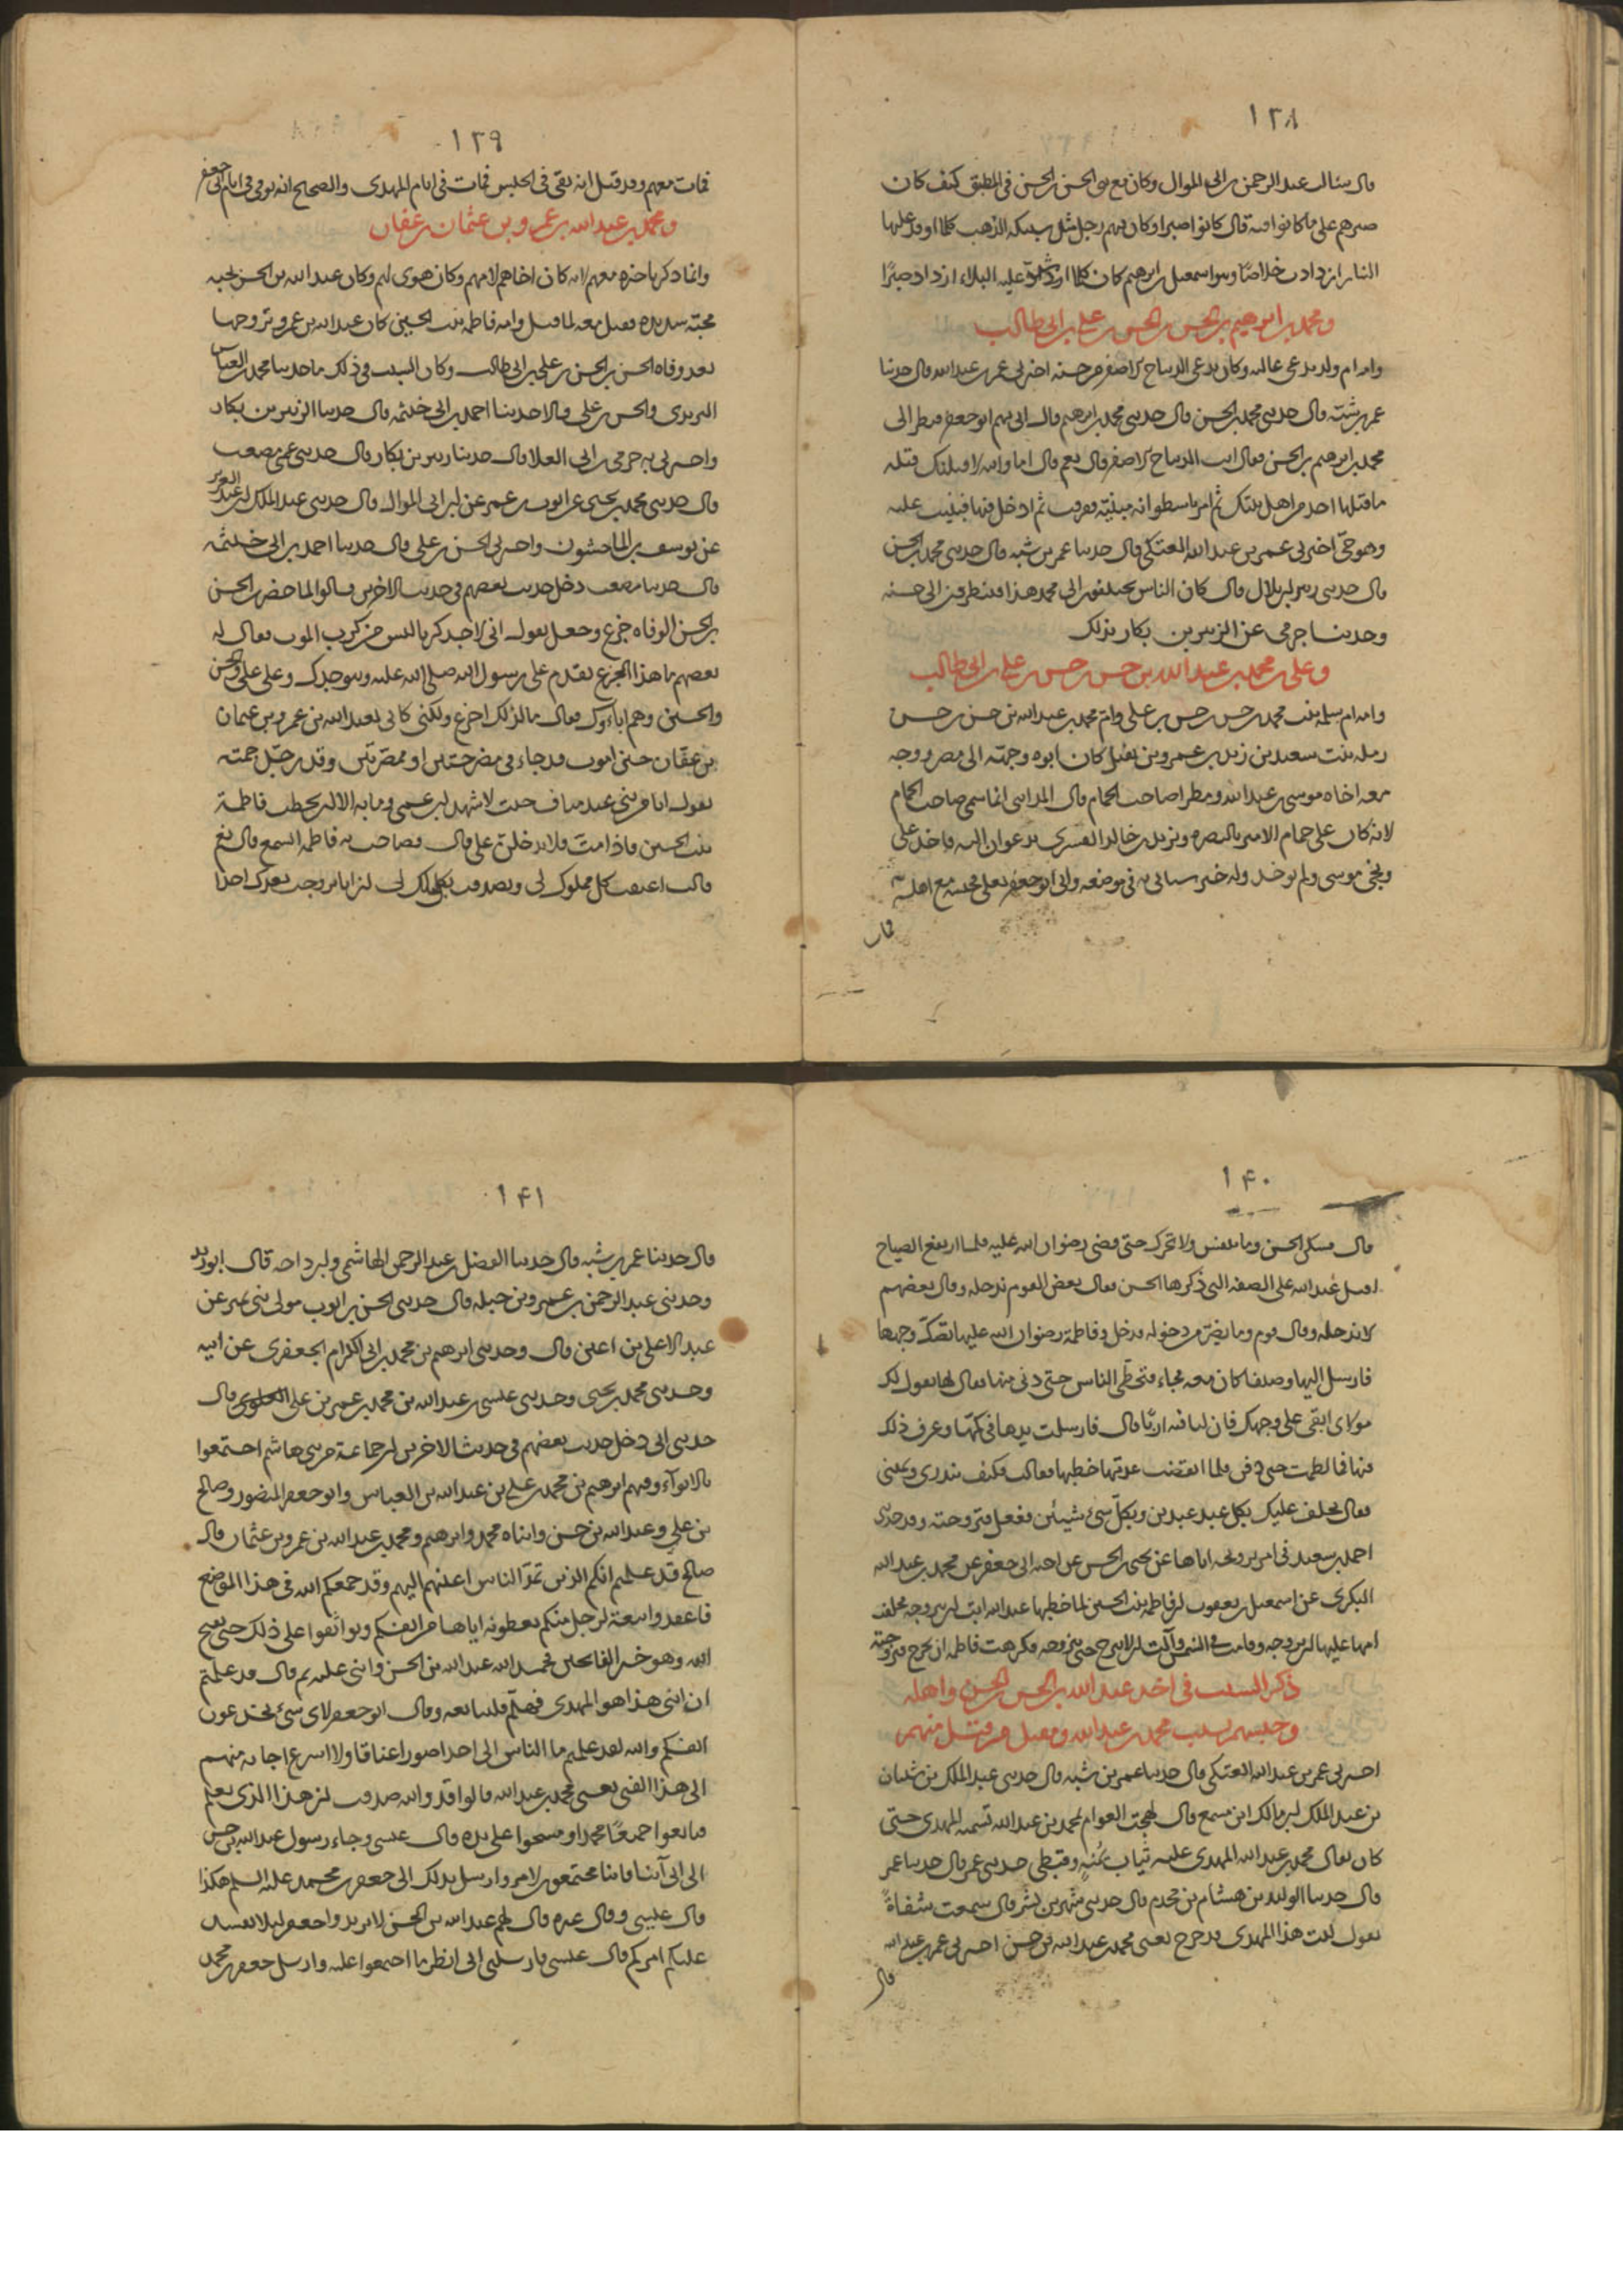 ١٣٨
قال سئالت عبد الرحمن بن ابى الموال وكان مع بنى الحسن بن الحسن فى المطبق كيف كان
صبرهم على ما كانوا فيه قال كانوا صبرا وكان فيهم رجل مثل سبيكة الذهب كلما اوقد عليها
النار ازدادت خلاصا وهو اسمعيل بن ابرهيم كان كلما اشتد عليه البلاء ازداد صبرًا
ومحمد بن ابرهيم بن الحسن بن الحسن بن على بن ابى طالب
وامه ام ولد تدعى عالية وكان يدعى الديباج الاصفر من حسنه اخبرنى عمر بن عبد الله قال حدثنا
عمر بن شبّة قال حدثنى محمد بن الحسن قال حدثنى محمد بن ابرهيم قال اتى بهم ابو جعفر فنظر الى
محمد بن ابرهيم بن الحسن فقال انت الديباج الاصفر قال نعم قال اما والله لاقتلنك قتلة
ما قتلها احد من اهل بيتك ثم امر باسطوانة مبنيّة ففرقت ثم ادخل فيها فبنيت عليه
وهو حىّ اخبرنى عمر بن عبد الله العتكى قال حدثنا عمر بن شبه قال حدثنى محمد بن الحسن
قال حدثنى الزبير بن بلال قال كان الناس يختلفون الى محمد هذا فينظرون الى حسنه
وحدثنا حرمى عن الزبير بن بكار بذلك
وعلى بن محمد بن عبد الله بن حسن بن حسن بن على بن ابى طالب
وامه ام سلمة بنت محمد بن حسن بن حسن بن على وامّ محمد بن عبد الله بن حسن بن حسن
رملة بنت سعيد بن زيد بن عمرو بن نفيل كان ابوه وجهّه الى مصر ووجه
معه اخاه موسى بن عبد الله ومطرا صاحب الحمام قال المدائنى انما سمى صاحب الحمام
لانه كان على حمام الامير بالبصرة ويزيد بن خالد القسرى يدعوان اليه فاخذ على
ونجى موسى ولم يوخذ وله خبر سياتى به فى موضعه واتى ابو جعفر بعلى فحبسه مع اهله
فمات
١٣٩
فمات معهم وقد قيل انه بقى فى الحبس فمات فى ايام المهدى والصحيح انه توفى فى ايام ابى جعفر
ومحمد بن عبد الله بن عمرو بن عثمان بن عفان
وانما ذكرنا خبره معهم لانه كان اخاهم لامهم وكان هوى لهم وكان عبد الله بن الحسن يحبه
محبّة شديدة فقتل معه لما قتل وامه فاطمة بنت الحسين كان عبد الله بن عمرو تزوجها
بعد وفاة الحسن بن الحسن بن على بن ابى طالب وكان السبب فى ذلك ما حدثنا محمد بن العباس
اليزيدى والحسن بن على قالا حدثنا احمد بن ابى خيثمه قال حدثنا الزبير بن بكار
واخبرنى به حرمى بن ابى العلا قال حدثنا زبير بن بكار قال حدثنى عمى مصعب
قال حدثنى محمد بن يحيى عن ايوب بن عمر عن ابن ابى الموال قال حدثنى عبد الملك بن عبد العزيز
عن يوسف بن الماجشون واخبرنى الحسن بن على قال حدثنا احمد بن ابى خيثمه
قال حدثنا مصعب دخل حديث بعضهم فى حديث الاخرين قالوا لما حضرت الحسن
بن الحسن الوفاة جزع وجعل يقول انى لاجد كربا ليس من كرب الموت فقال له
بعضهم ما هذا الجزع تقدم على رسول الله صلى الله عليه وهو جدك وعلى على والحسن
والحسين وهم اباؤك فقال ما لذلك اجزع ولكنى كانى بعبد الله بن عمرو بن عثمان
بن عفّان حين اموت قد جاء فى مضرجتين او ممصّرتين وقد رجّل جمّته
يقول انا من بنى عبد مناف جئت لاشهد ابن عمى وما به الا ان يخطب فاطمة
بنت الحسين فاذا متّ فلا يدخلنّ على قال فصاحت به فاطمة اتسمع قال نعم
قالت اعتقت كل مملوك لى وتصدقت بكل ملك لى ان انا تزوجت بعدك احدا
١۴٠
قال فسكن الحسن وما تنفس ولا تحرك حتى قضى رضوان الله عليه فلما ارتفع الصياح
اقبل عبد الله على الصفة التى ذكرها الحسن فقال بعض القوم ندخله وقال بعضهم
لا ندخله وقال قوم وما يضرّ من دخوله فدخل وفاطمة رضوان الله عليها تصكّ وجهها
فارسل اليها وصيفا كان معه فجاء فتخطّى الناس حتى دنى منها فقال لها يقول لك
مولاى ابقى على وجهك فان لنا فيه اربا قال فارسلت يدها فى كمّها وعرف ذلك
منها فما لطمت حتى دفن فلما انقضت عدتها خطبها فقالت فكيف بنذرى ويمينى
فقال نخلف عليك بكل عبد عبدين وبكلّ شئ شيئين ففعل فتزوجته وقد حدثنى
احمد بن سعيد فى امر تزويجه اياها عن يحيى بن الحسن عن اخيه ابى جعفر عن محمد بن عبد الله
البكرى عن اسمعيل بن يعقوب ان فاطمة بنت الحسين لما خطبها عبد الله ابت ان تزوجه فحلفت
امها عليها لتزوجه وقامت فى الشمس وآلت ان لا تبرح حتى تزوجه فكرهت فاطمة ان تحرج فتزوجته
ذكر السبب فى اخذ عبد الله بن الحسن بن الحسن واهله
وحبسهم بسبب محمد بن عبد الله ومقتل من قتل منهم
اخبرنى عمر بن عبد الله العتكى قال حدثنا عمر بن شبه قال حدثنى عبد الملك بن شيبان
بن عبد الملك بن مالك ابن مسمع قال لهجت العوام لمحمد بن عبد الله تسميه المهدى حتى
كان يقال محمد بن عبد الله المهدى عليه ثياب يمنيه وقبطى حدثنى عمر قال حدثنا عمر
قال حدثنا الوليد بن هشام بن محدم قال حدثنى سهر بن بشر قال سمعت شفاة
يقول ليت هذا المهدى قد خرج يعنى محمد بن عبد الله بن حسن اخبرنى عمر بن عبد الله
قال
١۴١
قال حدثنا عمر بن شبه قال حدثنا الفضل بن عبد الرحمن الهاشمى وابن داحه قال ابو زيد
وحدثنى عبد الرحمن بن عمرو بن جبله قال حدثنى الحسن بن ايوب مولى بنى نمير عن
عبد الاعلى بن اعين قال وحدثنى ابرهيم بن محمد بن ابى الكرام الجعفرى عن ابيه
وحدثنى محمد بن يحيى وحدثنى عيسى بن عبد الله بن محمد بن عمر بن على العلوى قال
حدثنى ابى دخل حديث بعضهم فى حديث الاخرين ان جماعة من بنى هاشم اجتمعوا
بالابوآء وفيهم ابرهيم بن محمد بن على بن عبد الله بن العباس وابو جعفر المنصور وصالح
بن على وعبد الله بن حسن وابناه محمد وابرهيم ومحمد بن عبد الله بن عمرو بن عثمان فقال
صالح قد علمتم انكم الذين تمدّ الناس اعينهم اليهم وقد جمعكم الله فى هذا الموضع
فاعقدوا بيعة لرجل منكم تعطونه اياها من انفسكم وتواثقوا على ذلك حتى يفتح
الله وهو خير الفاتحين فحمد الله عبد الله بن الحسن واثنى عليه ثم قال قد علمتم
ان ابنى هذا هو المهدى فهلمّ فلنبايعه وقال ابو جعفر لاى شئ تخدعون
انفسكم والله لقد علمتم ما الناس الى احد اصور اعناقا ولا اسرع اجابة منهم
الى هذا الفتى يعنى محمد بن عبد الله قالوا قد والله صدقت ان هذا الذى نعلم
فبايعوا جميعًا محمدا ومسحوا على يده قال عيسى وجاء رسول عبد الله بن حسن
الى ابى ائتنا فاننا مجتمعون لامر وارسل بذلك الى جعفر بن محمد عليه السلم هكذا
قال عيسى وقال غيره قال لهم عبد الله بن الحسن لا نريد جعفر لئلا يفسد
عليكم امركم قال عيسى فارسلنى ابى انظر ما اجتمعوا عليه وارسل جعفر بن محمد